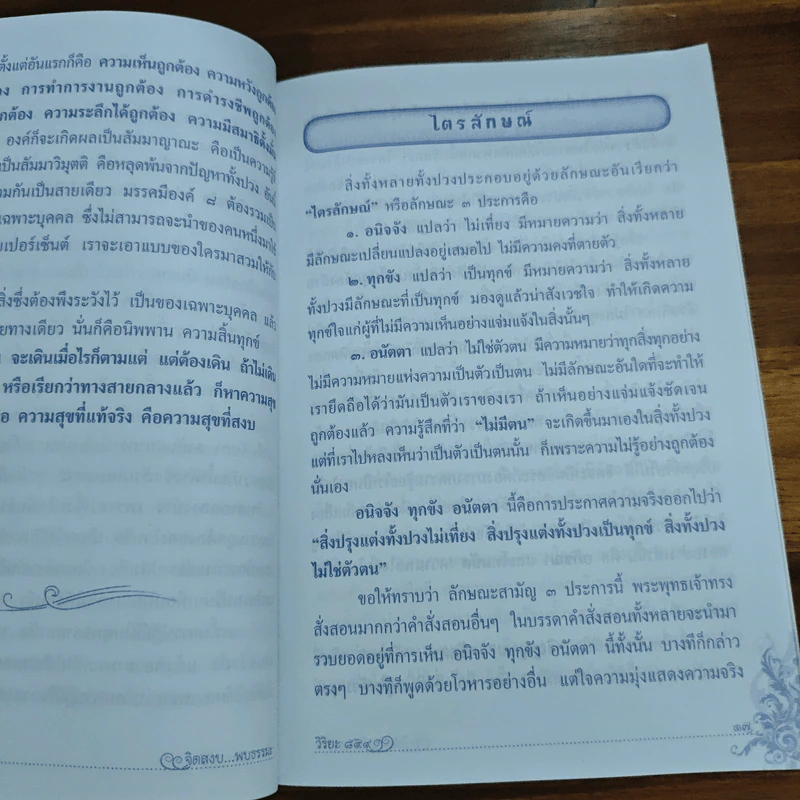 ตั้งแต่อันแรกก็คือ ความเห็นถูกต้อง ความหวังถูกต้อง
การทำการงานถูกต้อง การดำรงชีพถูกต้อง
ความระลึกได้ถูกต้อง ความมีสมาธิตั้งมั่น
องค์ก็จะเกิดผลเป็นสัมมาญาณะ คือเป็นความรู้
เป็นสัมมาวิมุตติ คือหลุดพ้นจากปัญหาทั้งปวง อันนี้
กันเป็นสายเดียว มรรคมีองค์ ๘ ต้องรวมเป็น
เฉพาะบุคคล ซึ่งไม่สามารถจะนำของคนหนึ่งมาใช้
เปอร์เซ็นต์ เราจะเอาแบบของใครมาสวมให้กับ
สิ่งซึ่งต้องพึงระวังไว้ เป็นของเฉพาะบุคคล แล้ว
ทางเดียว นั่นก็คือนิพพาน ความสิ้นทุกข์
จะเดินเมื่อไรก็ตามแต่ แต่ต้องเดิน ถ้าไม่เดิน
หรือเรียกว่าทางสายกลางแล้ว ก็หาความสุข
ความสุขที่แท้จริง คือความสุขที่สงบ
จิตสงบ...พบธรรมะ
ไตรลักษณ์
สิ่งทั้งหลายทั้งปวงประกอบอยู่ด้วยลักษณะอันเรียกว่า
“ไตรลักษณ์” หรือลักษณะ ๓ ประการคือ
๑. อนิจจัง แปลว่า ไม่เที่ยง มีหมายความว่า สิ่งทั้งหลาย
มีลักษณะเปลี่ยนแปลงอยู่เสมอไป ไม่มีความคงที่ตายตัว
๒. ทุกขัง แปลว่า เป็นทุกข์ มีหมายความว่า สิ่งทั้งหลาย
ทั้งปวงมีลักษณะที่เป็นทุกข์ มองดูแล้วน่าสังเวชใจ ทำให้เกิดความ
ทุกข์ใจแก่ผู้ที่ไม่มีความเห็นอย่างแจ่มแจ้งในสิ่งนั้นๆ
๓. อนัตตา แปลว่า ไม่ใช่ตัวตน มีความหมายว่าทุกสิ่งทุกอย่าง
ไม่มีความหมายแห่งความเป็นตัวเป็นตน ไม่มีลักษณะอันใดที่จะทำให้
เรายึดถือได้ว่ามันเป็นตัวเราของเรา ถ้าเห็นอย่างแจ่มแจ้งชัดเจน
ถูกต้องแล้ว ความรู้สึกที่ว่า “ไม่มีตน” จะเกิดขึ้นมาเองในสิ่งทั้งปวง
แต่ที่เราไปหลงเห็นว่าเป็นตัวเป็นตนนั้น ก็เพราะความไม่รู้อย่างถูกต้อง
นั่นเอง
อนิจจัง ทุกขัง อนัตตา นี้คือการประกาศความจริงออกไปว่า
“สิ่งปรุงแต่งทั้งปวงไม่เที่ยง สิ่งปรุงแต่งทั้งปวงเป็นทุกข์ สิ่งทั้งปวง
ไม่ใช่ตัวตน”
ขอให้ทราบว่า ลักษณะสามัญ ๓ ประการนี้ พระพุทธเจ้าทรง
สั่งสอนมากกว่าคำสั่งสอนอื่นๆ ในบรรดาคำสั่งสอนทั้งหลายจะนำมา
รวบยอดอยู่ที่การเห็น อนิจจัง ทุกขัง อนัตตา นี้ทั้งนั้น บางทีก็กล่าว
ตรงๆ บางทีก็พูดด้วยโวหารอย่างอื่น แต่ใจความมุ่งแสดงความจริง
วิริยะ ๘๔๙
๑๗